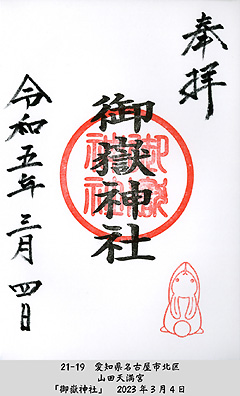 奉拝
御嶽神社
御嶽神社
令和五年三月四日
21-19 愛知県名古屋市北区
山田天満宮
「御嶽神社」 2023年3月4日